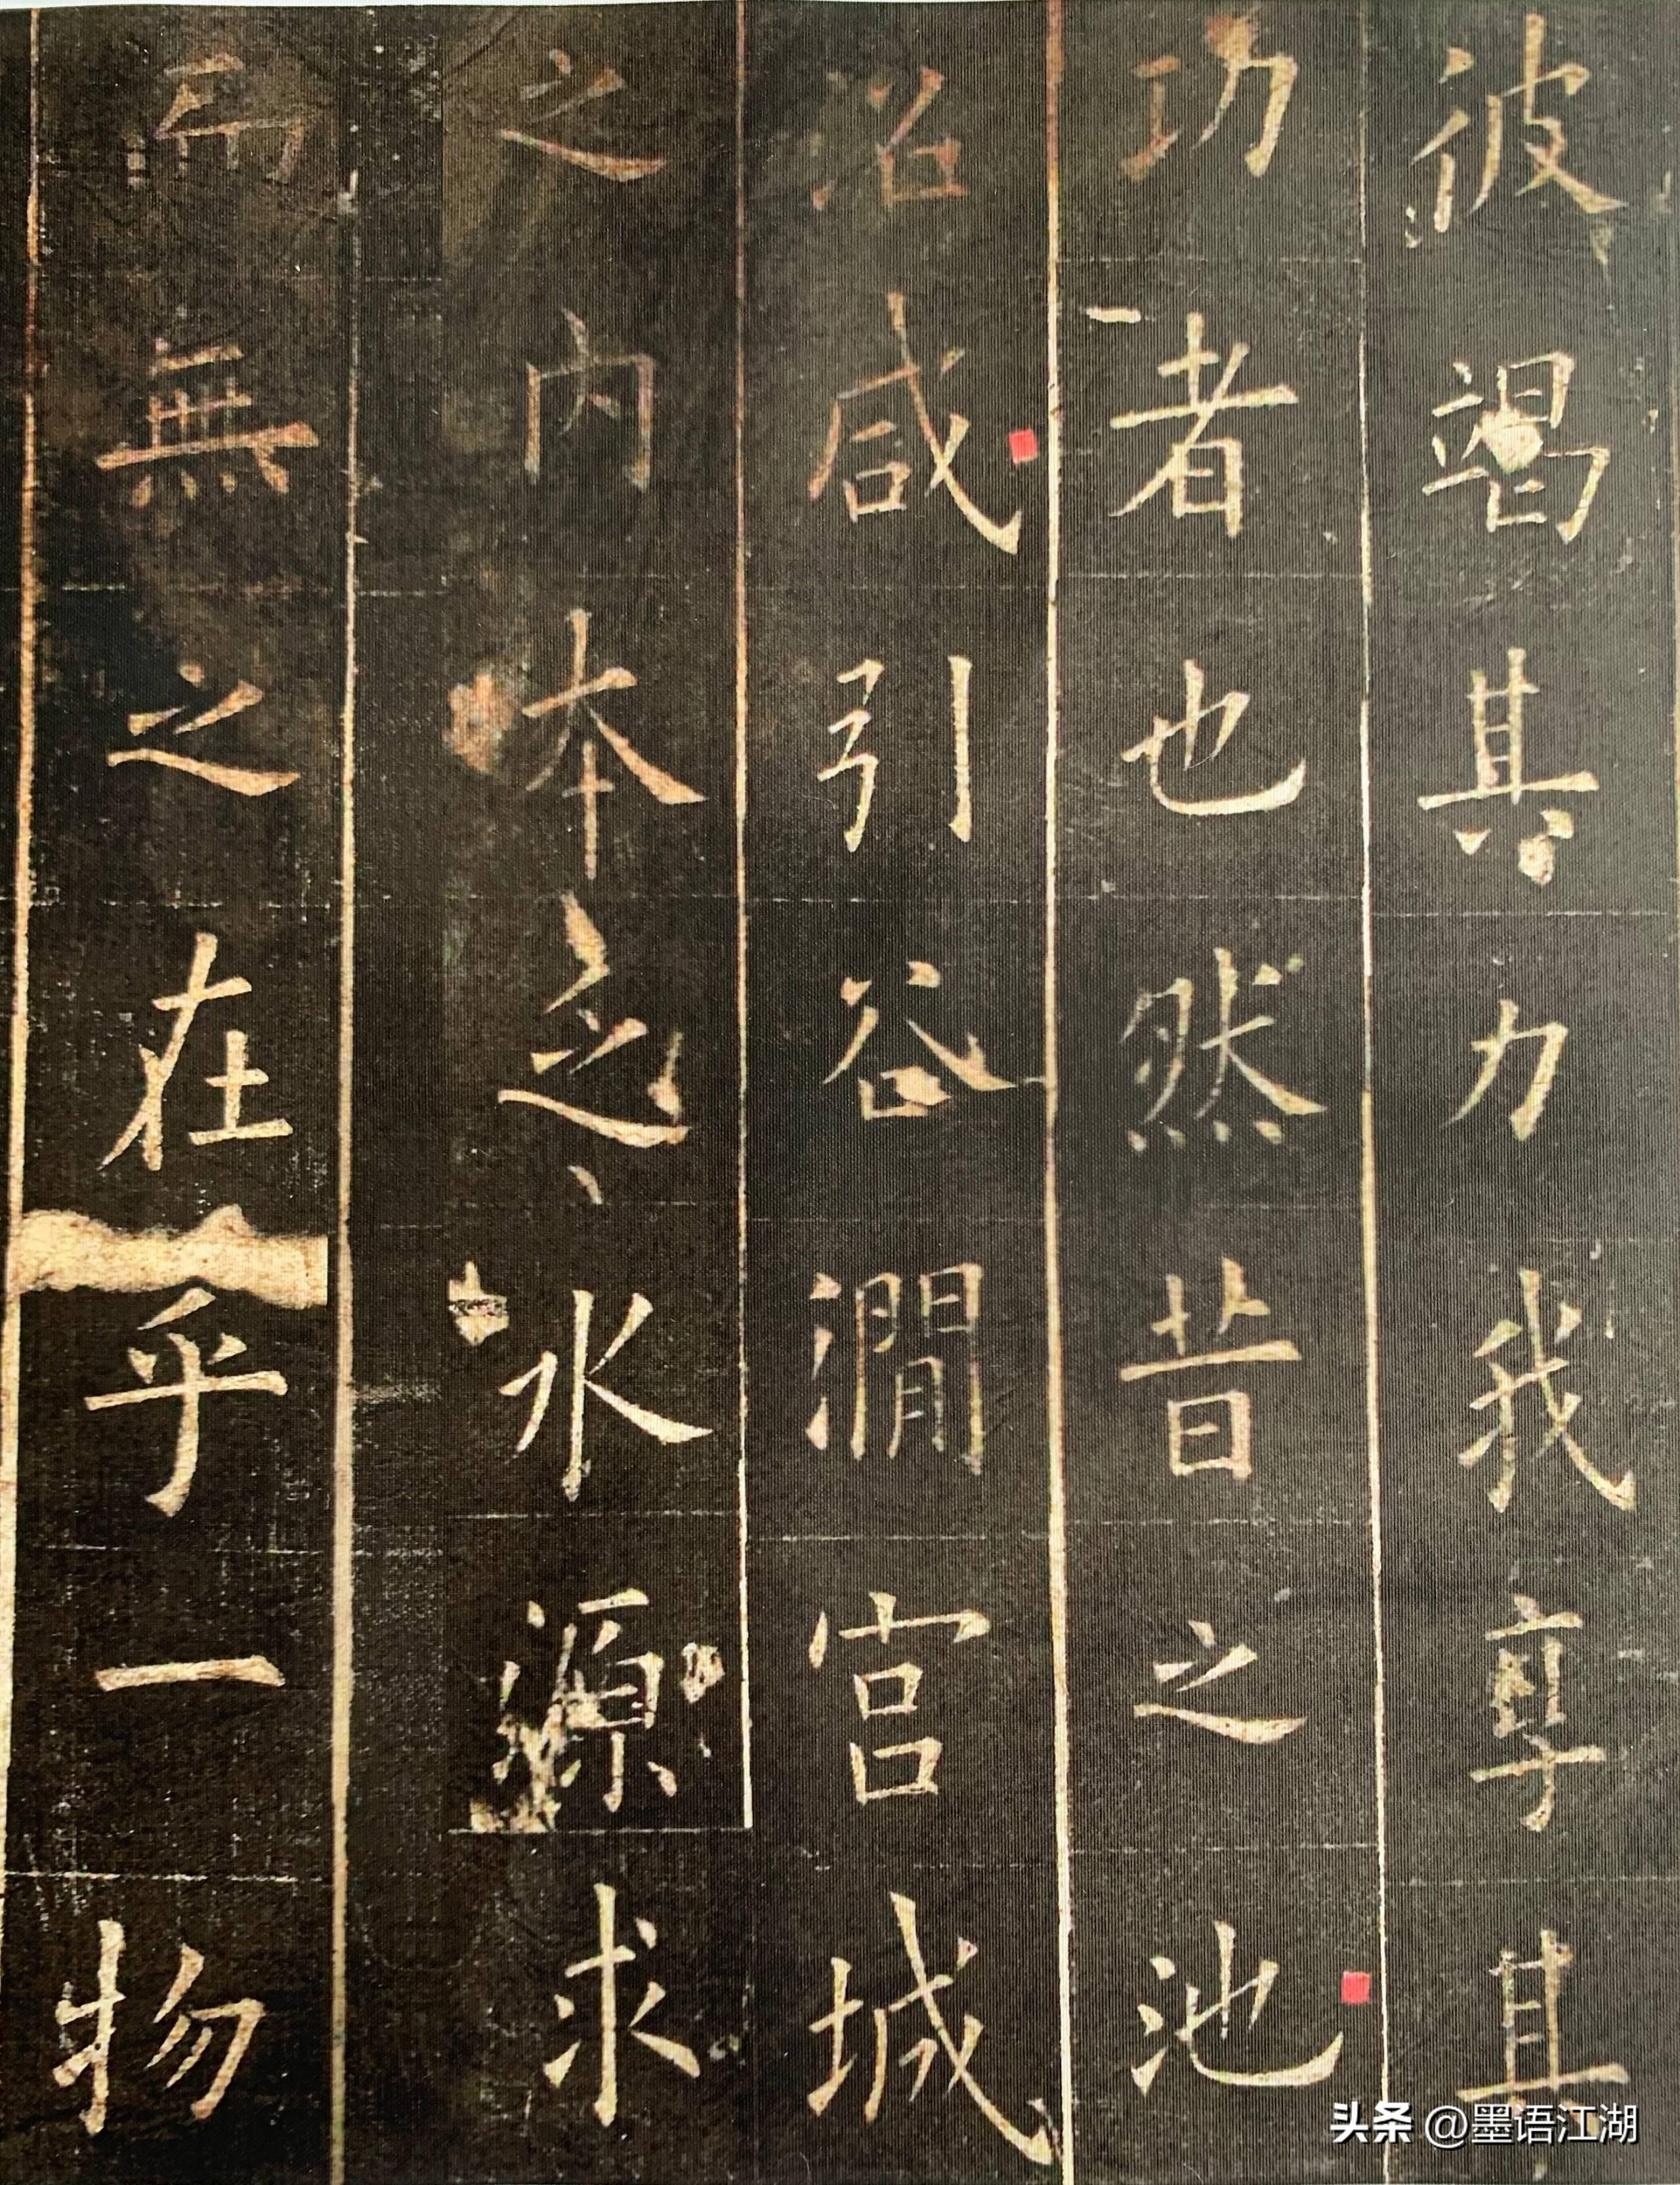 彼竭其力我享其
功者也然昔之池
沼咸引谷㵎宮城
之内本乏水源求
而無之在乎一物
头条 @墨语江湖